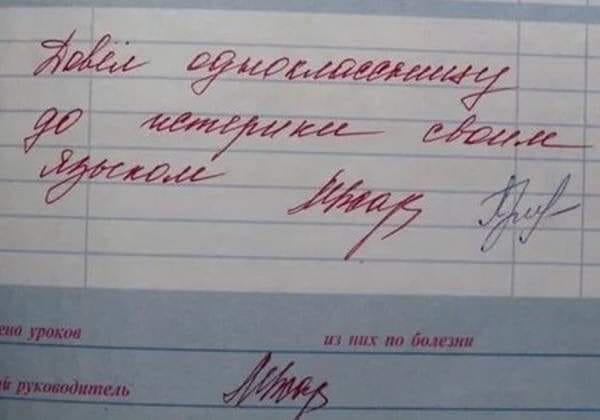 Довёл одноклассницу
до истерики своим
языком
ено уроков из них по болезни
й руководитель